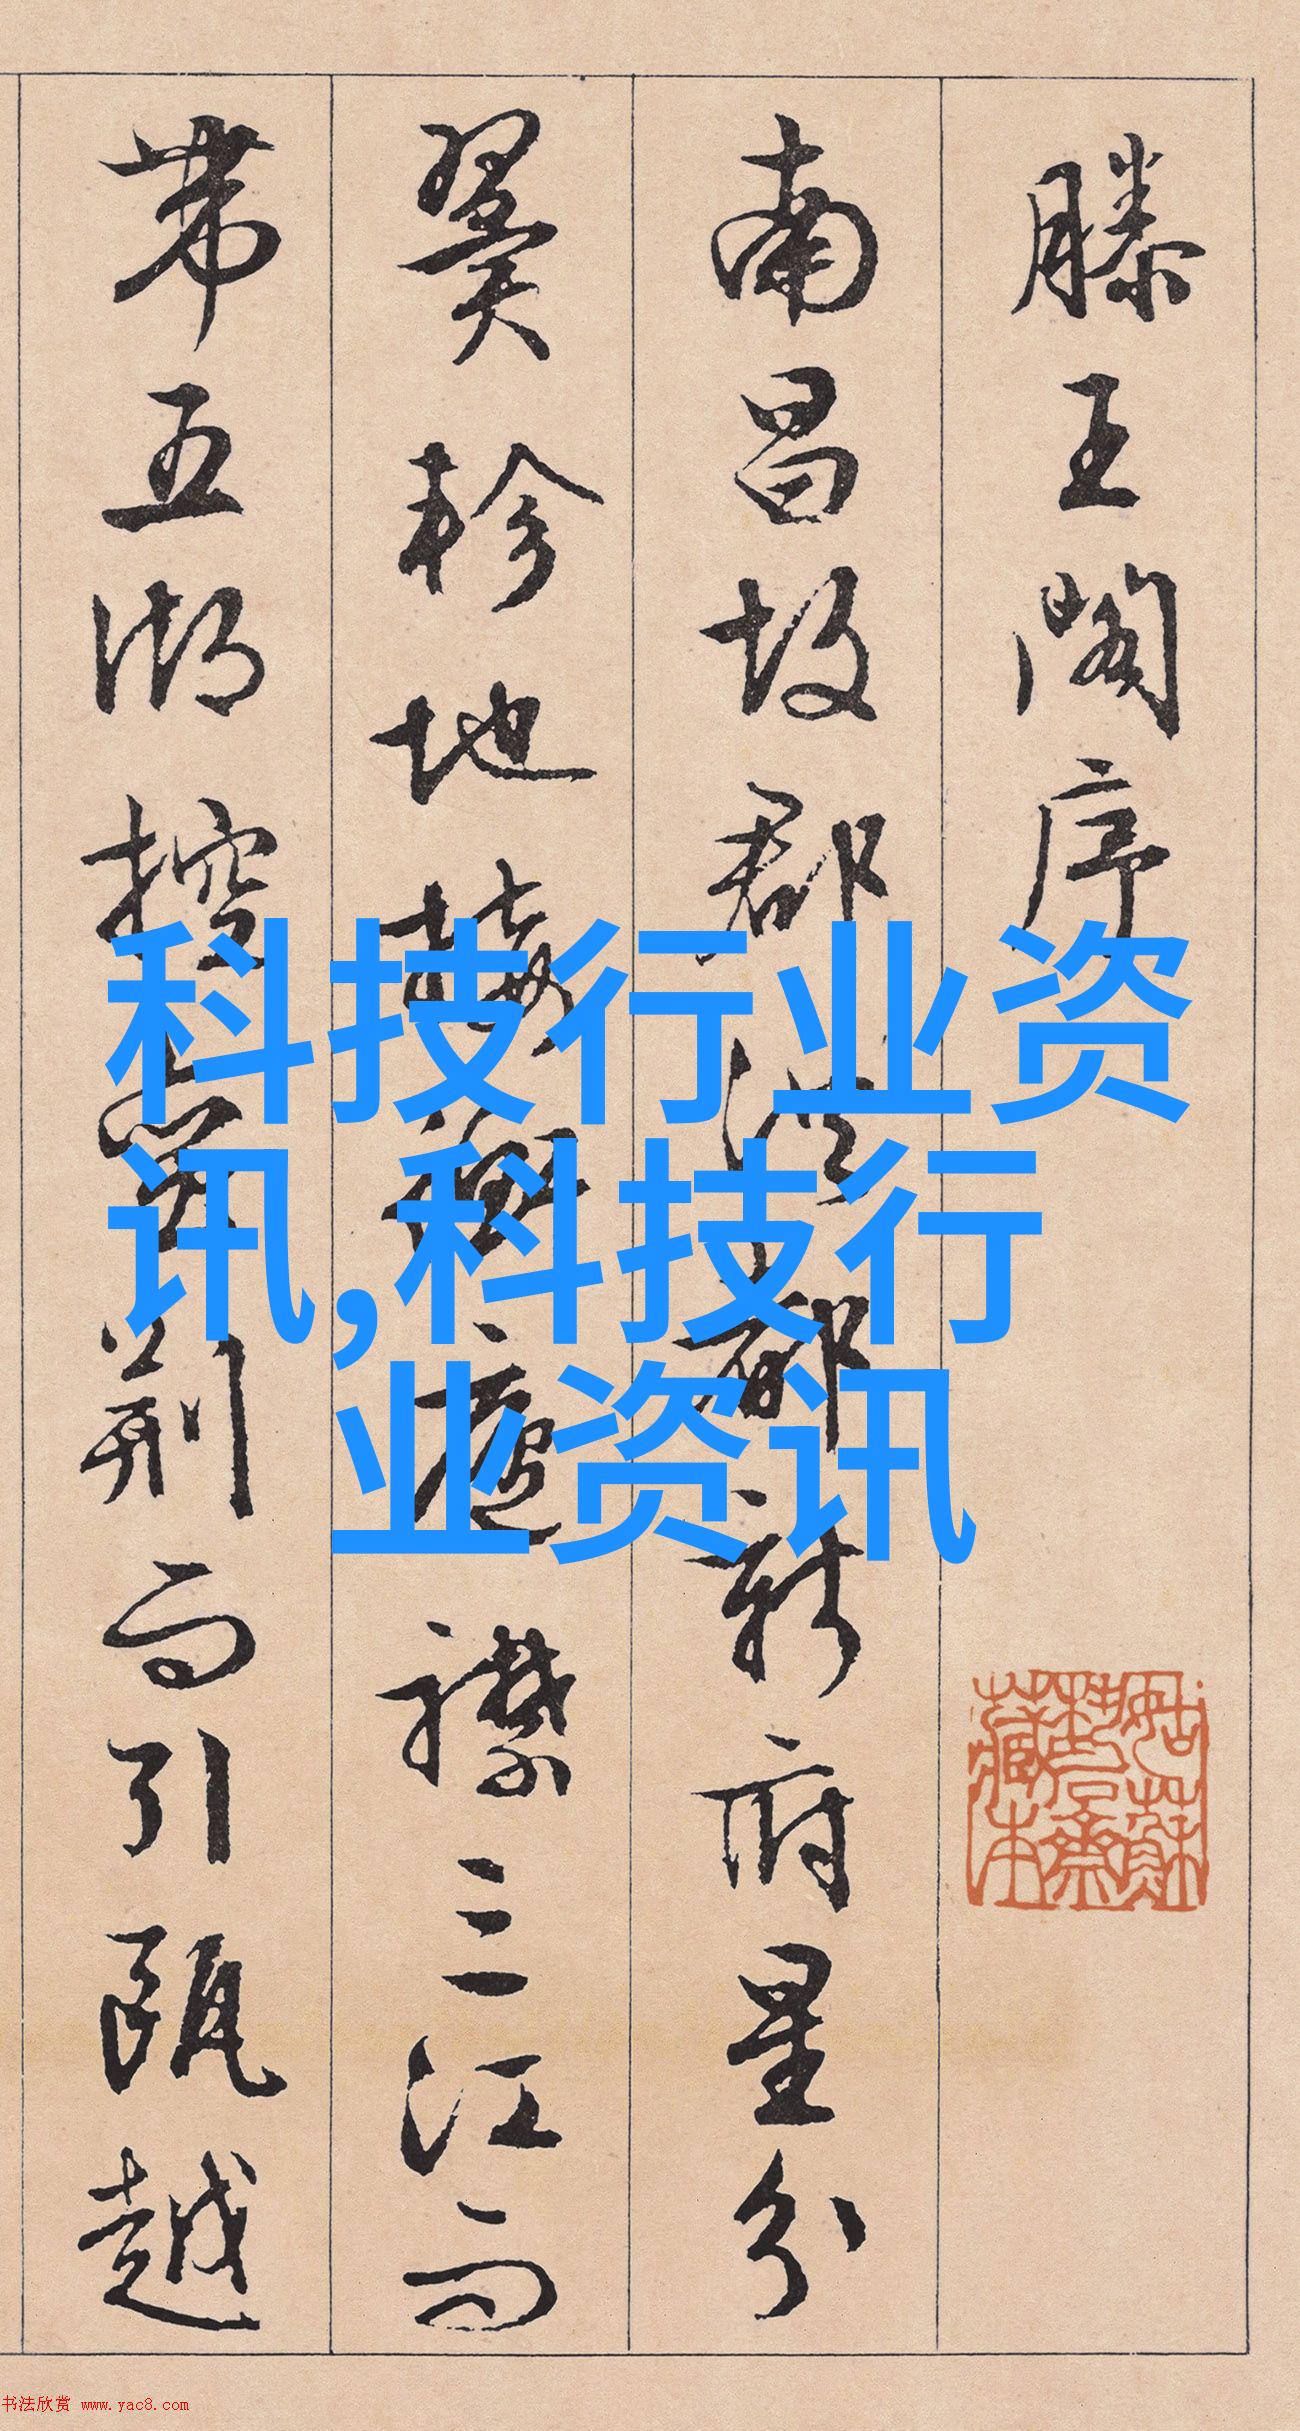 滕王閣序
南昌故郡洪都新府星分
翼軫地接衡廬襟三江而
帶五湖控蠻荊而引甌越
科技行业资
讯,科技行
业资讯
书法欣赏 www.yac8.com